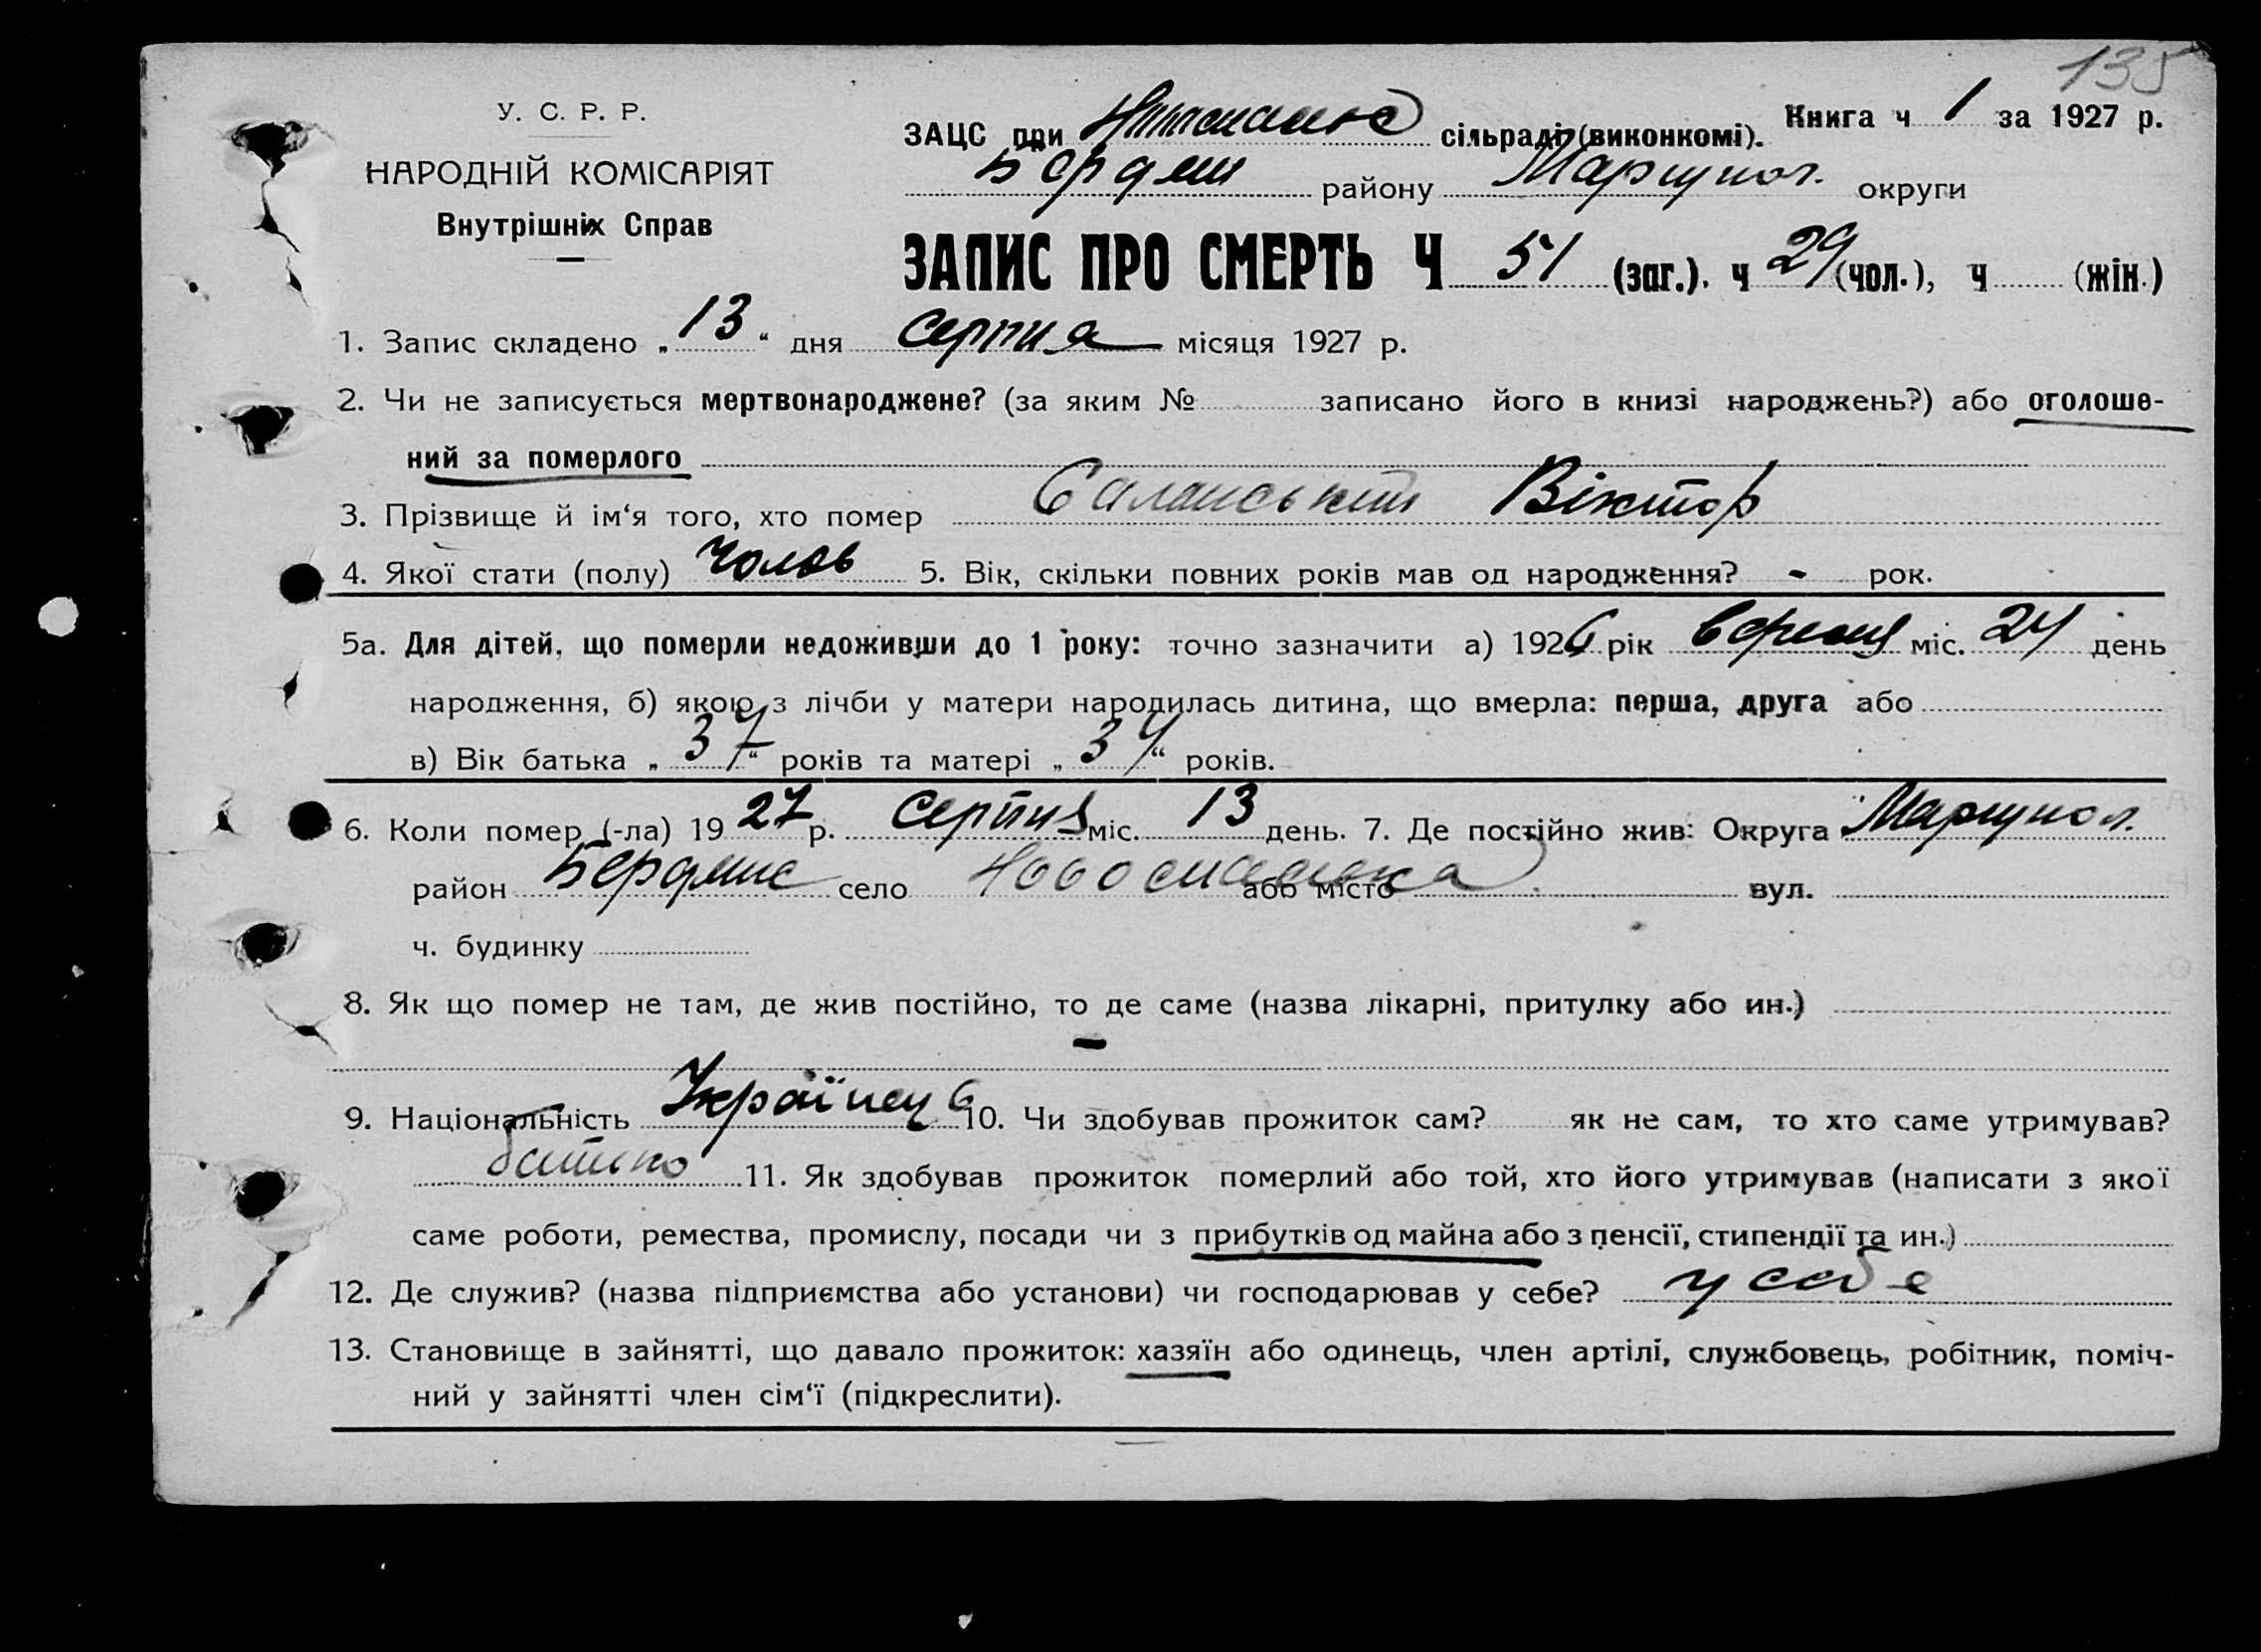 135
У. С. Р. Р.
НАРОДНІЙ КОМІСАРІЯТ
Внутрішніх Справ
ЗАЦС при сільраді (виконкомі). Книга ч 1 за 1927 р.
району Маріупол. округи
ЗАПИС ПРО СМЕРТЬ Ч 51 (заг.). ч 29 (чол.), ч (жін.)
1. Запис складено „ 13 “ дня серпня місяця 1927 р.
2. Чи не записується мертвонароджене? (за яким № записано його в книзі народжень?) або оголоше-
ний за померлого
3. Прізвище й ім‘я того, хто помер Віктор
4. Якої стати (полу) Чолов 5. Вік, скільки повних років мав од народження? - рок.
5а. Для дітей, що померли недоживши до 1 року: точно зазначити а) 1926 рік вересня міс. 24 день
народження, б) якою з лічби у матери народилась дитина, що вмерла: перша, друга або
в) Вік батька „ 37 “ років та матері „ 34 “ років.
6. Коли помер (-ла) 19 27 р. Серпня міс. 13 день. 7. Де постійно жив: Округа Маріупол.
район село Новоспасівка або місто вул.
ч. будинку
8. Як що помер не там, де жив постійно, то де саме (назва лікарні, притулку або ин.)
-
9. Національність Українець 10. Чи здобував прожиток сам? як не сам, то хто саме утримував?
батько 11. Як здобував прожиток померлий або той, хто його утримував (написати з якої
саме роботи, ремества, промислу, посади чи з прибутків од майна або з пенсії, стипендії та ин.)
12. Де служив? (назва підприємства або установи) чи господарював у себе? у себе
13. Становище в зайнятті, що давало прожиток: хазяїн або одинець, член артілі, службовець, робітник, поміч-
ний у зайнятті член сім‘ї (підкреслити).